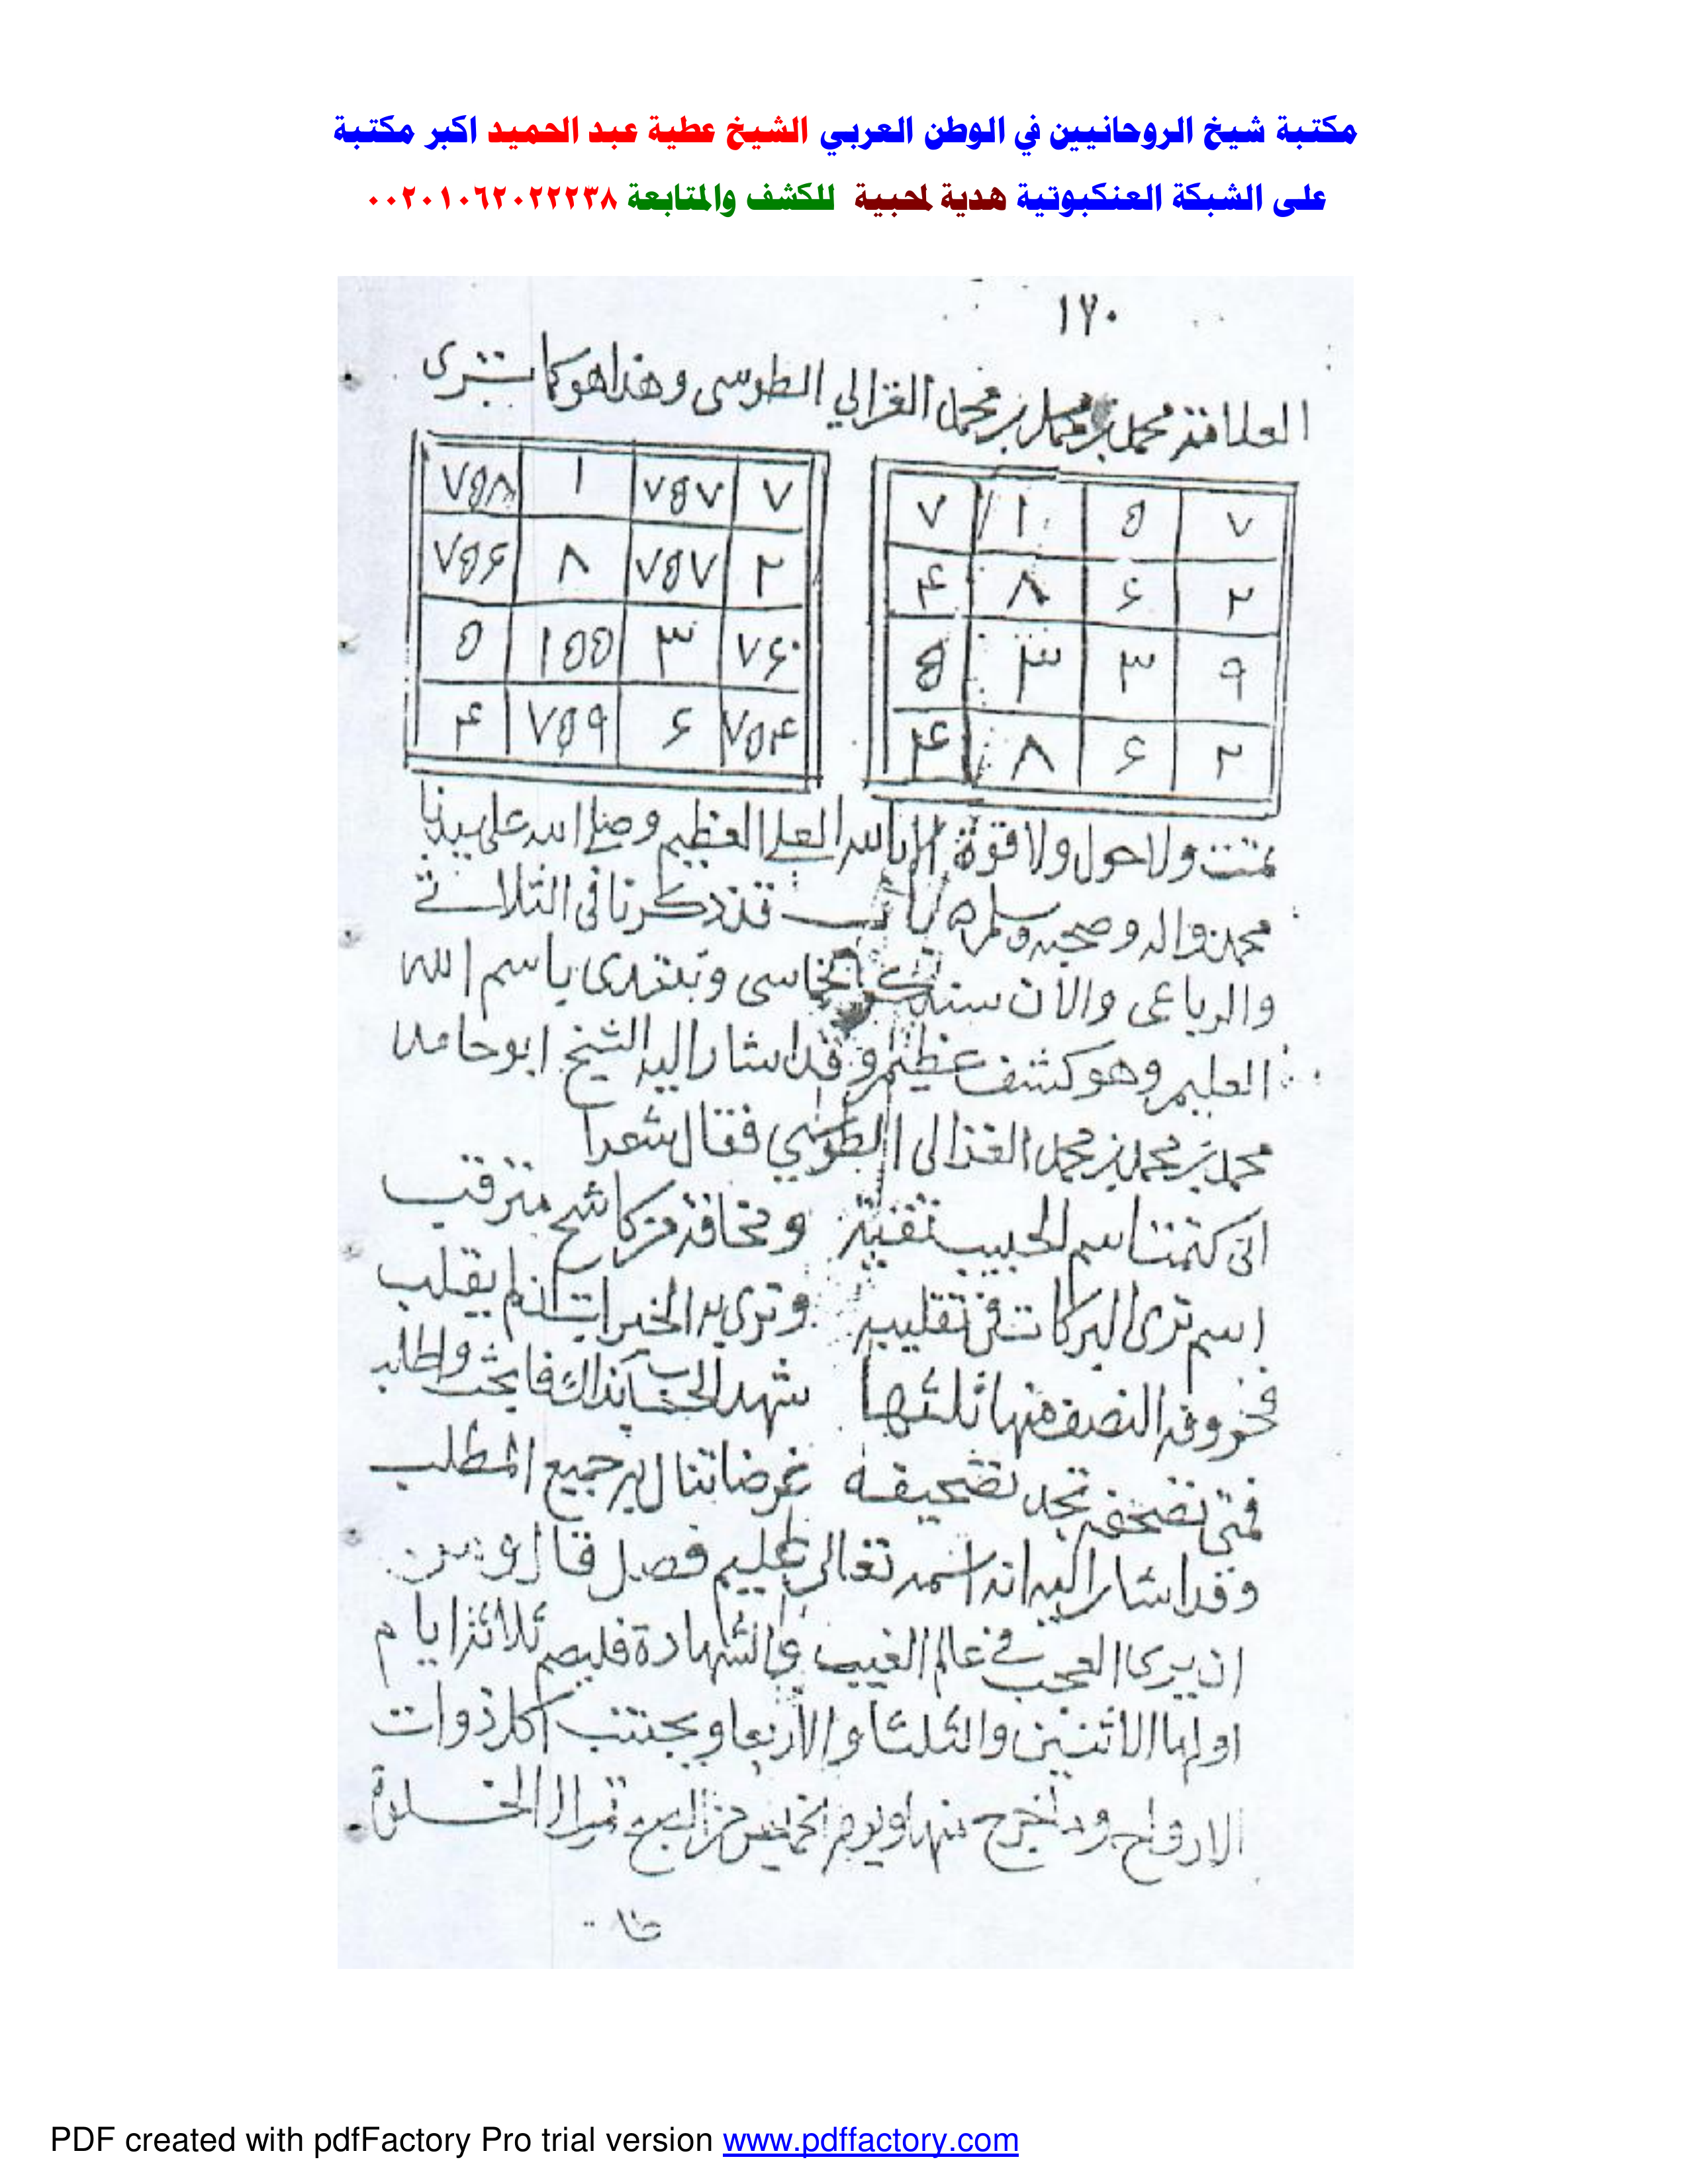 مكتبة شيخ الروحانيين في الوطن العربي الشيخ عطية عبد الحميد اكبر مكتبة
على الشبكة العنكبوتية هدية لمحبية للكشف والمتابعة ٠٠٢٠١٠٦٢٠٢٢٢٣٨
١٧٠
العلامة محمد بن محمد بن محمد الغزالي الطوسى وهذا هو كما ترى
٧ ٥ ١ ٧
٢ ۶ ٨ ۴
٩ ٣ ٣ ٥
٢ ۶ ٨ ۴
٧ ٧٥٧ ١ ٧٥٨
٢ ٧٥٧ ٨ ٧٥۶
٧۶٠ ٣ ١٥٥ ٥
٧٥۴ ۶ ٧٥٩ ۴
تمت ولا حول ولا قوة الا بالله العلي العظيم وصلى الله على سيدنا
محمد واله وصحبه وسلم باب قد ذكرنا فى الثلاثى
والرباعى والان سنذكر الخماسى ونبتدى باسم الله
العليم وهو كشف عظيم وقد اشار اليه الشيخ ابو حامد
محمد بن محمد بن محمد الغزالى الطوسي فقال شعرا
انى كتمت اسم الحبيب تقية ومخافة من كاشح مترقب
اسم ترى البركات فى تقليبه وترى به الخيرات ان لم يقلب
فحروفه النصف منها ثلثها شهد الحساب بذاك فابحث واطلب
فمتى تصحفه تجد تصحيفه غرضا تنال به جميع المطلب
وقد اشار اليه انه اسمه تعالى عليم فصل قال ومن
ان يرى العجب في عالم الغيب والشهادة فليصم ثلاثة ايام
اولها الاثنين والثلثا والاربعا ويجتنب اكل ذوات
الارواح وما خرج منها ويوم الخميس الخلوة